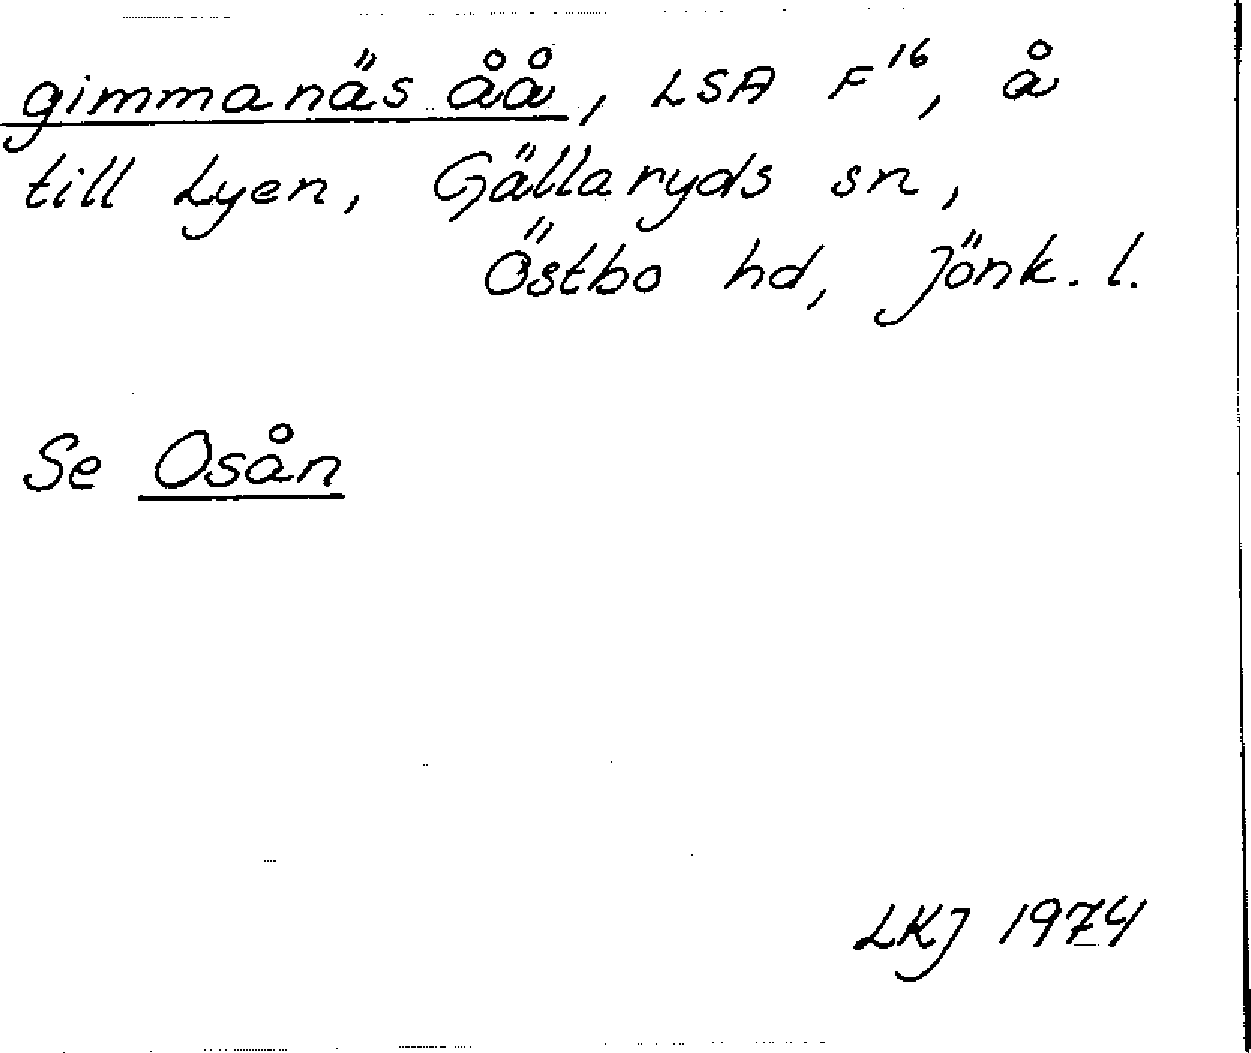 gimmanäs åå, LSA F16, å
till Lyen, Gällaryds sn,
Östbo hd, Jönk. l.
Se Osån
LKJ 1974